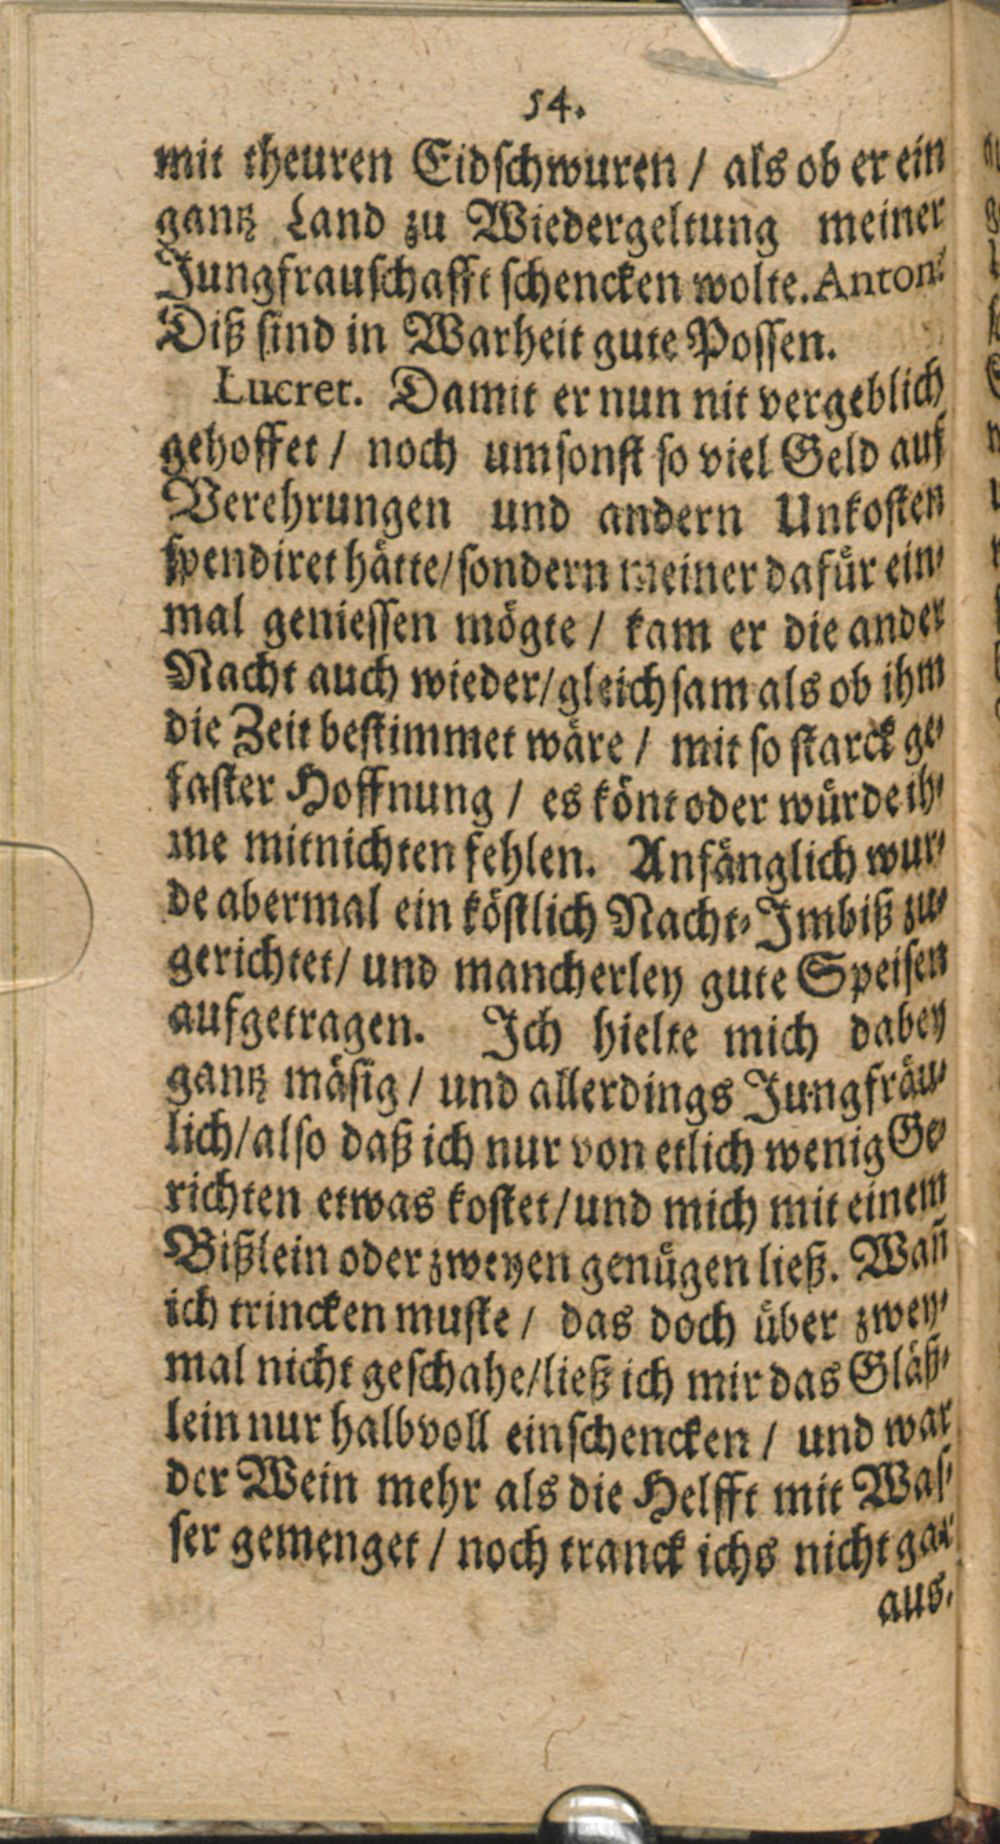 54.
mit theuren Eidschwuren / als ob er ein
gantz Land zu Wiedergeltung meiner
Jungfrauschafft schencken wolte. Anton:
Diß sind in Warheit gute Possen.
Lucret. Damit er nun nit vergeblich
gehoffet / noch umsonst so viel Geld auf
Verehrungen und andern Unkosten
spendiret hätte / sondern meiner dafür ein-
mal geniessen mögte / kam er die ander
Nacht auch wieder / gleichsam als ob ihm
die Zeit bestimmet wäre / mit so starck ge-
faster Hoffnung / es könt oder würde ih-
me mitnichten fehlen. Anfänglich wur-
de abermal ein köstlich Nacht-Imbiß zu-
gerichtet / und mancherley gute Speisen
aufgetragen. Ich hielte mich dabey
gantz mäsig / und allerdings Jungfräu-
lich / also daß ich nur von etlich wenig Ge-
richten etwas kostet / und mich mit einem
Bißlein oder zweyen genügen ließ. Wañ
ich trincken muste / das doch über zwey-
mal nicht geschahe / ließ ich mir das Gläß-
lein nur halbvoll einschencken / und war
der Wein mehr als die Helfft mit Was-
ser gemenget / noch tranck ichs nicht gar
aus.